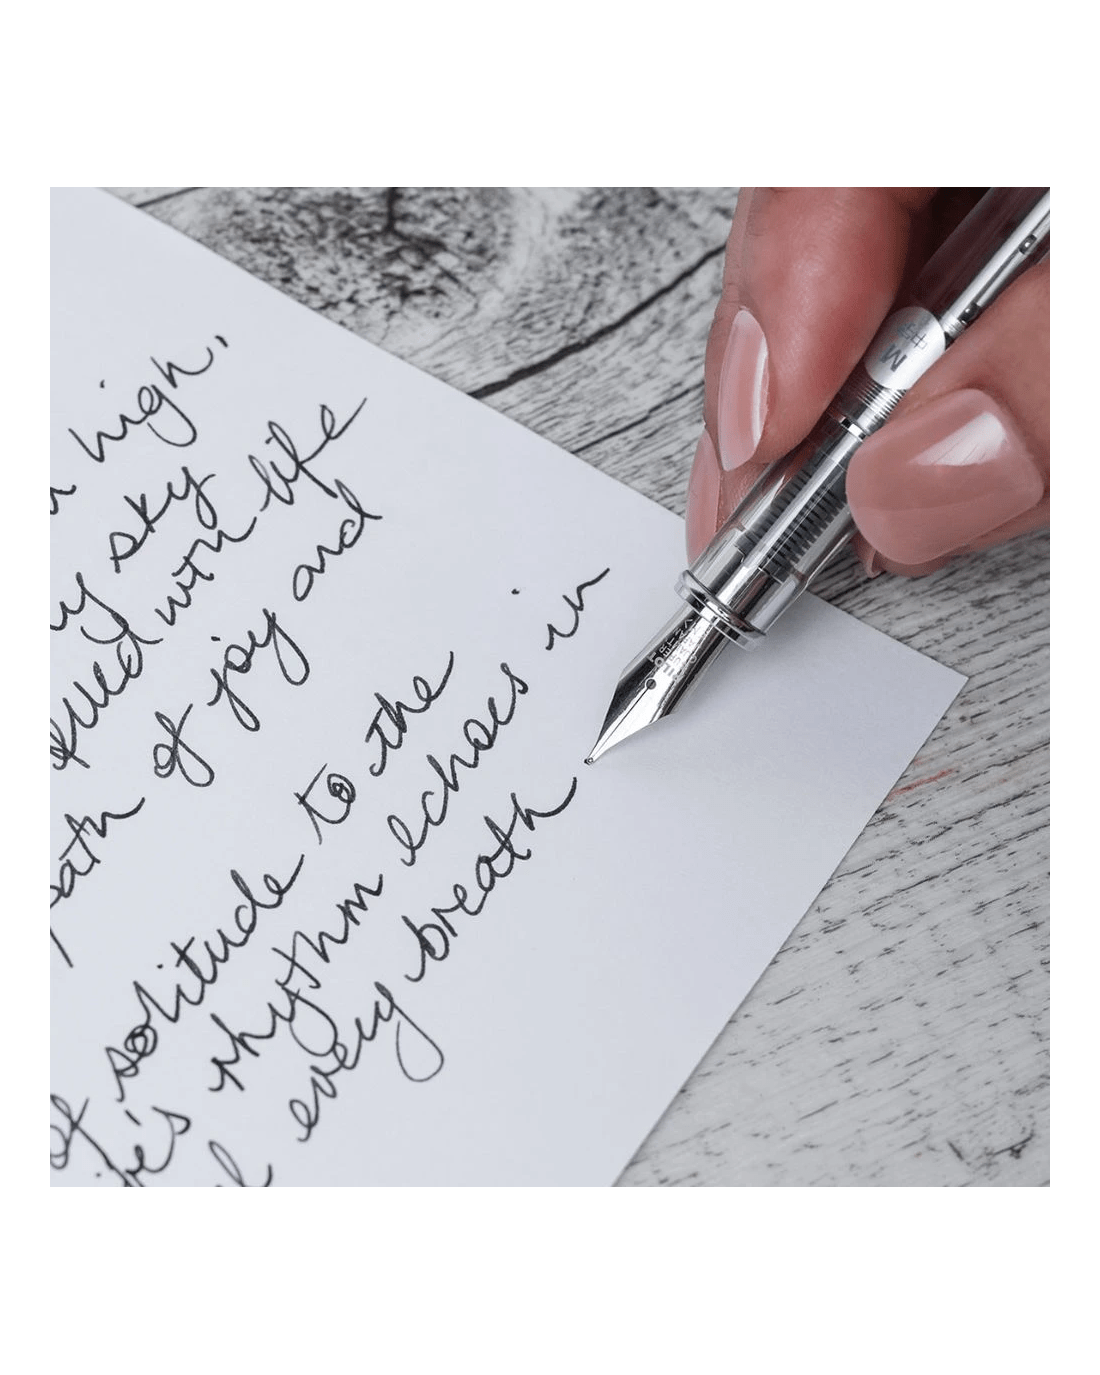 high,
sky
filled with life
path of joy and
of solitude to the
life's rhythm echoes in
every breath
M